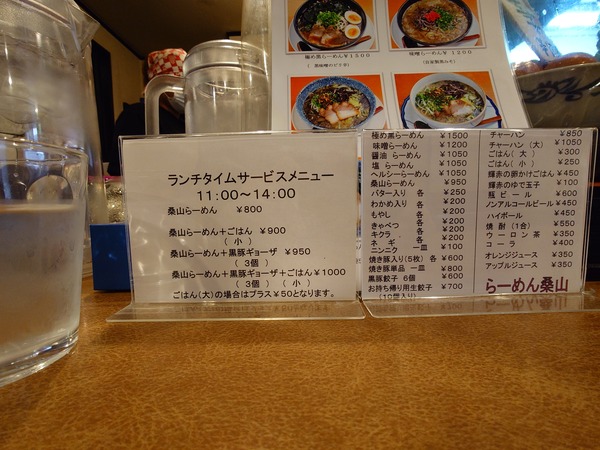 極め黒らーめん ¥1500
味噌らーめん ¥1200
ランチタイムサービスメニュー
11:00～14:00
桑山らーめん ¥800
桑山らーめん+ごはん ¥900
(小)
桑山らーめん+黒豚ギョーザ ¥950
(3個)
桑山らーめん+黒豚ギョーザ+ごはん¥1000
(3個) (小)
ごはん(大)の場合はプラス¥50となります。
極め黒らーめん ¥1500
味噌らーめん ¥1200
醤油らーめん ¥1050
塩らーめん ¥1050
ヘルシーらーめん ¥1050
桑山らーめん ¥950
バター入り 各 ¥250
わかめ入り 各 ¥200
もやし 各 ¥200
きゃべつ 各 ¥200
キクラゲ 各 ¥200
ネギ 各 ¥200
ニンニク 一皿 ¥100
焼き豚入り(5枚) 各 ¥600
焼き豚単品 一皿 ¥800
黒豚餃子 6個 ¥600
お持ち帰り用生餃子 ¥700
(10個入り)
チャーハン ¥850
チャーハン(大) ¥1050
ごはん(大) ¥300
ごはん(小) ¥250
輝赤の卵かけごはん ¥450
輝赤のゆで玉子 ¥100
瓶ビール ¥600
ノンアルコールビール ¥450
ハイボール ¥450
焼酎(1合) ¥550
ウーロン茶 ¥350
コーラ ¥400
オレンジジュース ¥350
アップルジュース ¥350
らーめん桑山